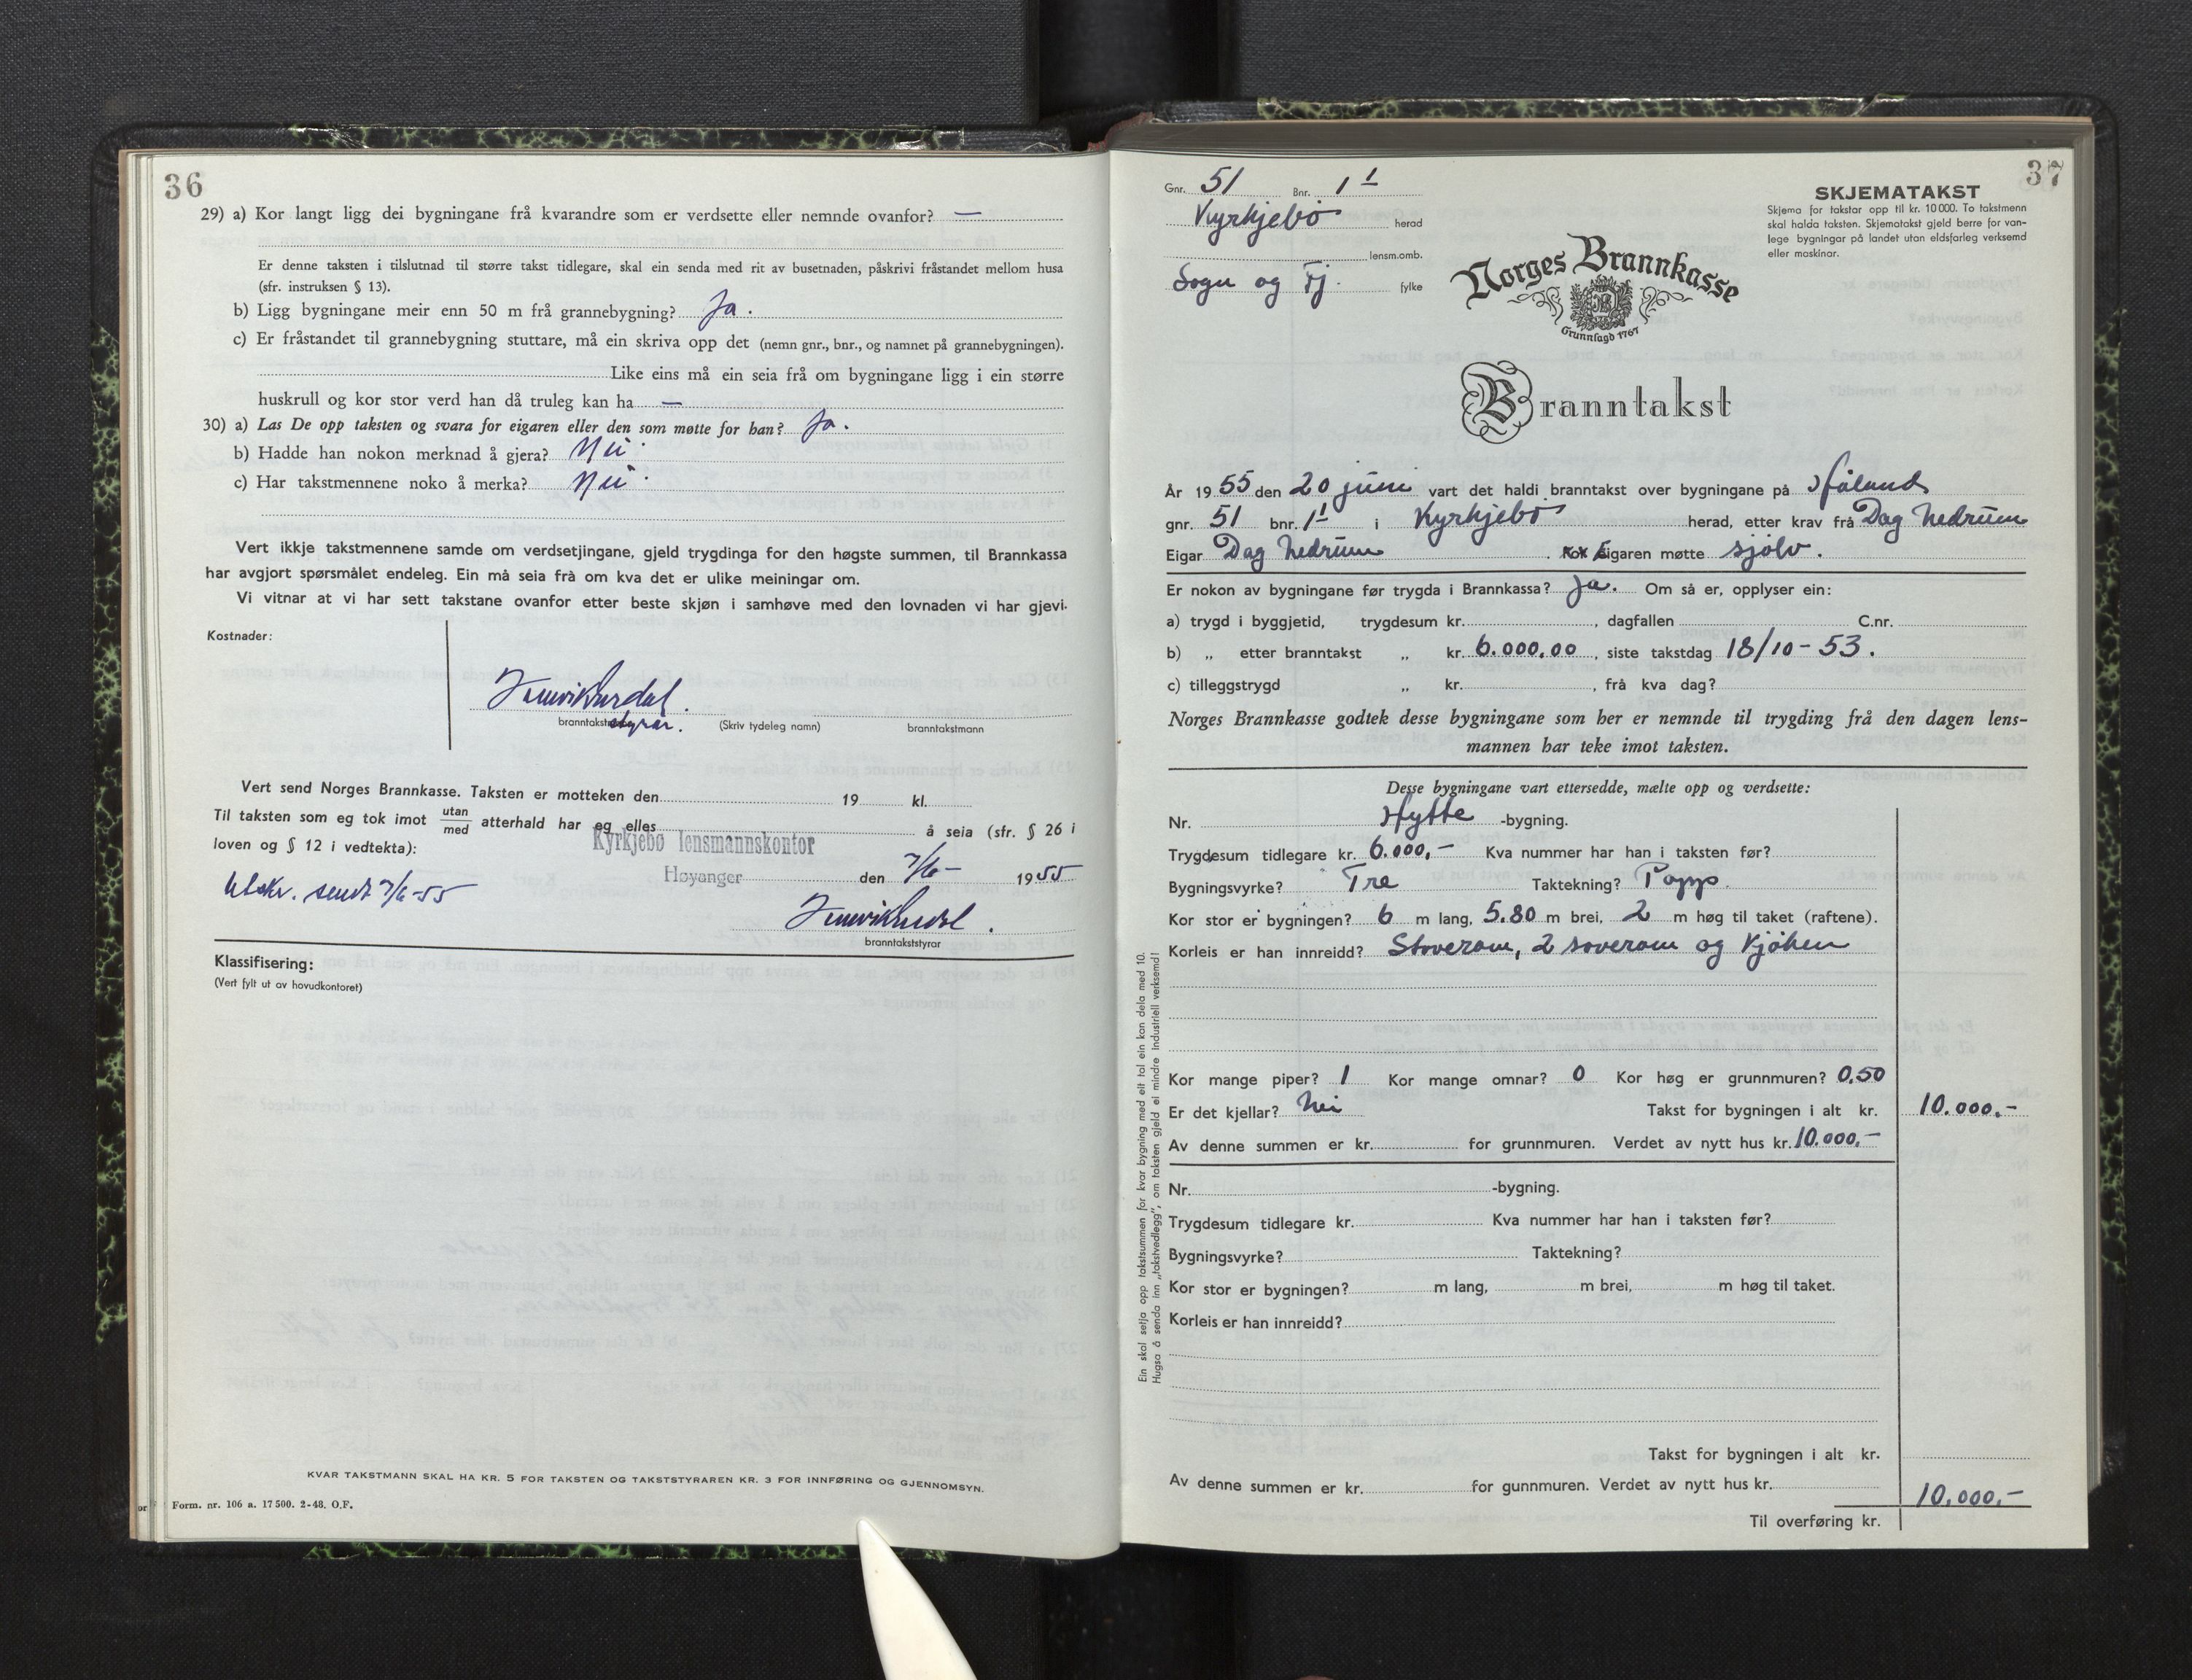 36
29) a) Kor langt ligg dei bygningane frå kvarandre som er verdsette eller nemnde ovanfor? —
Er denne taksten i tilslutnad til større takst tidlegare, skal ein senda med rit av busetnaden, påskrivi fråstandet mellom husa
(sfr. instruksen § 13).
b) Ligg bygningane meir enn 50 m frå grannebygning? Ja.
c) Er fråstandet til grannebygning stuttare, må ein skriva opp det (nemn gnr., bnr., og namnet på grannebygningen).
Like eins må ein seia frå om bygningane ligg i ein større
huskrull og kor stor verd han då truleg kan ha —
30) a) Las De opp taksten og svara for eigaren eller den som møtte for han? Ja.
b) Hadde han nokon merknad å gjera? Nei
c) Har takstmennene noko å merka? Nei
Vert ikkje takstmennene samde om verdsetjingane, gjeld trygdinga for den høgste summen, til Brannkassa
har avgjort spørsmålet endeleg. Ein må seia frå om kva det er ulike meiningar om.
Vi vitnar at vi har sett takstane ovanfor etter beste skjøn i samhøve med den lovnaden vi har gjevi.
Kostnader:
branntakststyrar. (Skriv tydeleg namn) branntakstmann
Vert send Norges Brannkasse. Taksten er motteken den 19 kl.
Til taksten som eg tok imot utan/med atterhald har eg elles å seia (sfr. § 26 i
loven og § 12 i vedtekta):
Kyrkjebø lensmannskontor
Høyanger den 7/6- 1955
Utskr. sendt 7/6-55
branntakststyrar
Klassifisering:
(Vert fylt ut av hovudkontoret)
KVAR TAKSTMANN SKAL HA KR. 5 FOR TAKSTEN OG TAKSTSTYRAREN KR. 3 FOR INNFØRING OG GJENNOMSYN.
Form. nr. 106 a. 17 500. 2-48. O.F.
37
Gnr. 51 Bnr. 1 1
Kyrkjebø herad
lensm.omb.
Sogn og Fj. fylke
SKJEMATAKST
Skjema for takstar opp til kr. 10 000. To takstmenn
skal halda taksten. Skjematakst gjeld berre for van-
lege bygningar på landet utan eldsfarleg verksemd
eller maskinar.
Norges Brannkasse
Grunnlagd 1767
Branntakst
År 1955 den 20 juni vart det haldi branntakst over bygningane på
gnr. 51 bnr. 1 1 i Kyrkjebø herad, etter krav frå Dag Nedrum
Eigar Dag Nedrum. Eigaren møtte sjølv.
Er nokon av bygningane før trygda i Brannkassa? Ja. Om så er, opplyser ein:
a) trygd i byggjetid, trygdesum kr. , dagfallen C.nr.
b) „ etter branntakst „ kr. 6.000.00, siste takstdag 18/10-53.
c) tilleggstrygd „ kr. , frå kva dag?
Norges Brannkasse godtek desse bygningane som her er nemnde til trygding frå den dagen lens-
mannen har teke imot taksten.
Desse bygningane vart ettersedde, mælte opp og verdsette:
Nr. Hytte -bygning.
Trygdesum tidlegare kr. 6.000,- Kva nummer har han i taksten før?
Bygningsvyrke? Tre Taktekning? Papp.
Kor stor er bygningen? 6 m lang, 5.80 m brei, 2 m høg til taket (raftene).
Korleis er han innreidd? Stoverom, 2 soverom og kjøken
Kor mange piper? 1 Kor mange omnar? 0 Kor høg er grunnmuren? 0.50
Er det kjellar? Nei Takst for bygningen i alt kr. 10.000.-
Av denne summen er kr. for grunnmuren. Verdet av nytt hus kr. 10.000,-
Nr. -bygning.
Trygdesum tidlegare kr. Kva nummer har han i taksten før?
Bygningsvyrke? Taktekning?
Kor stor er bygningen? m lang, m brei, m høg til taket.
Korleis er han innreidd?
Takst for bygningen i alt kr.
Av denne summen er kr. for gunnmuren. Verdet av nytt hus kr.
10.000,-
Til overføring kr.
Ein skal setja opp takstsummen for kvar bygning med eit tal ein kan dela med 10.
Hugsa å senda inn „takstvedlegg", om taksten gjeld ei mindre industriell verksemd!